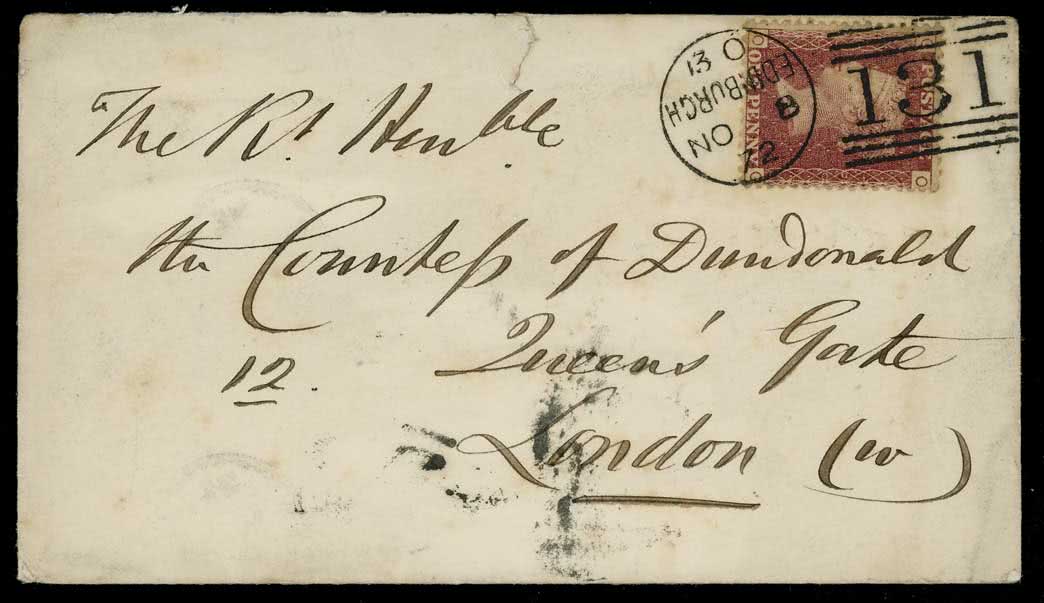 The Rt. Honble
the Countess of Dundonald
12. Queen's Gate
London (W)
EDINBURGH
13 O
B
NO
72
131
ONE PENNY
POSTAGE
O